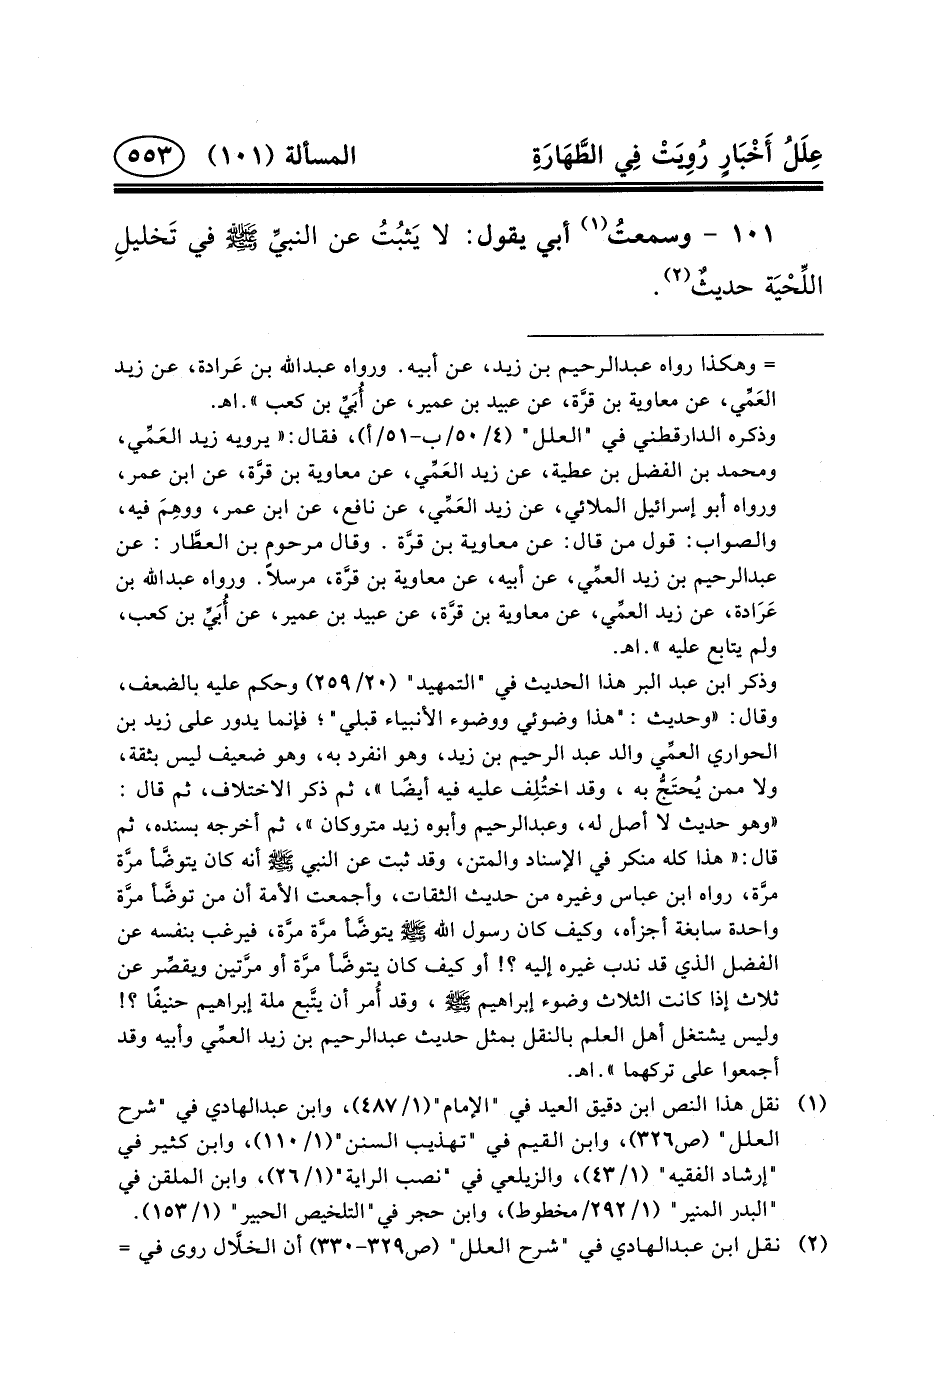 عِلَلُ أَخْبَارٍ رُوِيَتْ فِي الطَّهَارَةِ المسألة (١٠١) ٥٥٣
١٠١ - وسمعتُ(١) أبي يقول: لا يَثبُتُ عن النبيِّ ﷺ في تَخليلِ
اللِّحْيَة حديثٌ(٢).
= وهكذا رواه عبدالرحيم بن زيد، عن أبيه. ورواه عبدالله بن عَرادة، عن زيد
العَمِّي، عن معاوية بن قرَّة، عن عبيد بن عمير، عن أُبَيِّ بن كعب ».اهـ.
وذكره الدارقطني في "العلل" (٤/ ٥٠/ب-٥١/أ)، فقال:« يرويه زيد العَمِّي،
ومحمد بن الفضل بن عطية، عن زيد العَمِّي، عن معاوية بن قرَّة، عن ابن عمر،
ورواه أبو إسرائيل الملائي، عن زيد العَمِّي، عن نافع، عن ابن عمر، ووهِمَ فيه،
والصواب: قول من قال: عن معاوية بن قرَّة . وقال مرحوم بن العطَّار : عن
عبدالرحيم بن زيد العمِّي، عن أبيه، عن معاوية بن قرَّة، مرسلاً. ورواه عبدالله بن
عَرَادة، عن زيد العمِّي، عن معاوية بن قرَّة، عن عبيد بن عمير، عن أُبَيِّ بن كعب،
ولم يتابع عليه ».اهـ.
وذكر ابن عبد البر هذا الحديث في "التمهيد" (٢٠/ ٢٥٩) وحكم عليه بالضعف،
وقال: «وحديث : "هذا وضوئي ووضوء الأنبياء قبلي"؛ فإنما يدور على زيد بن
الحواري العمِّي والد عبد الرحيم بن زيد، وهو انفرد به، وهو ضعيف ليس بثقة،
ولا ممن يُحتَجُّ به ، وقد اختُلِف عليه فيه أيضًا »، ثم ذكر الاختلاف، ثم قال :
«وهو حديث لا أصل له، وعبدالرحيم وأبوه زيد متروكان »، ثم أخرجه بسنده، ثم
قال:« هذا كله منكر في الإسناد والمتن، وقد ثبت عن النبي ﷺ أنه كان يتوضَّأ مرَّة
مرَّة، رواه ابن عباس وغيره من حديث الثقات، وأجمعت الأمة أن من توضَّأ مرَّة
واحدة سابغة أجزأه، وكيف كان رسول الله ﷺ يتوضَّأ مرَّة مرَّة، فيرغب بنفسه عن
الفضل الذي قد ندب غيره إليه ؟! أو كيف كان يتوضَّأ مرَّة أو مرَّتين ويقصِّر عن
ثلاث إذا كانت الثلاث وضوء إبراهيم ﷺ ، وقد أُمر أن يتَّبع ملة إبراهيم حنيفًا ؟!
وليس يشتغل أهل العلم بالنقل بمثل حديث عبدالرحيم بن زيد العمِّي وأبيه وقد
أجمعوا على تركهما ».اهـ.
(١) نقل هذا النص ابن دقيق العيد في "الإمام"(١/ ٤٨٧)، وابن عبدالهادي في "شرح
العلل" (ص٣٢٦)، وابن القيم في "تهذيب السنن"(١/ ١١٠)، وابن كثير في
"إرشاد الفقيه" (١/ ٤٣)، والزيلعي في "نصب الراية"(١/ ٢٦)، وابن الملقن في
"البدر المنير" (١/ ٢٩٢/مخطوط)، وابن حجر في"التلخيص الحبير" (١/ ١٥٣).
(٢) نقل ابن عبدالهادي في "شرح العلل" (ص٣٢٩-٣٣٠) أن الخلَّال روى في =